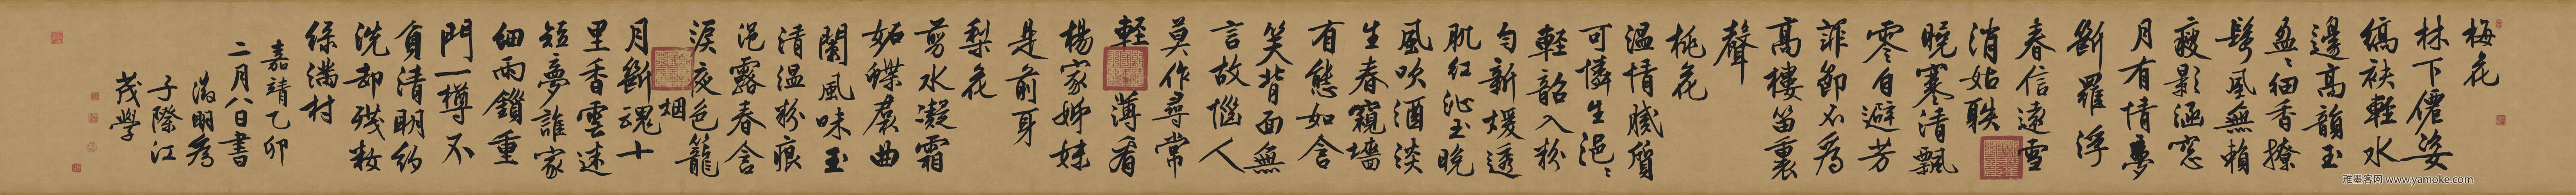 梅花
林下僊姿
縞袂輕水
邊高韻玉
盈〻細香撩
髩風無賴
瘦影涵窓
月有情夢
斷羅浮
春信遠雪
消姑
曉寒清飄
零自避芳
菲節不為
高樓笛裏
聲
桃花
溫情膩質
可憐生浥〻
輕韶入粉
勻新煖透
肌紅沁玉晚
風吹酒淡
生春窺墻
有態如含
笑背面無
言故惱人
莫作尋常
輕薄看
楊家姊妹
是前身
梨花
剪水凝霜
妬蝶裠曲
闌風味玉
清溫粉痕
浥露春含
淚夜色籠
烟
月斷魂十
里香雲迷
短夢誰家
細雨鎖重
門一樽不
負清明約
洗却殘妝
綠滿村
嘉靖乙卯
二月八日書
徵明為
子際江
茂學
雅墨客网 www.yamoke.com